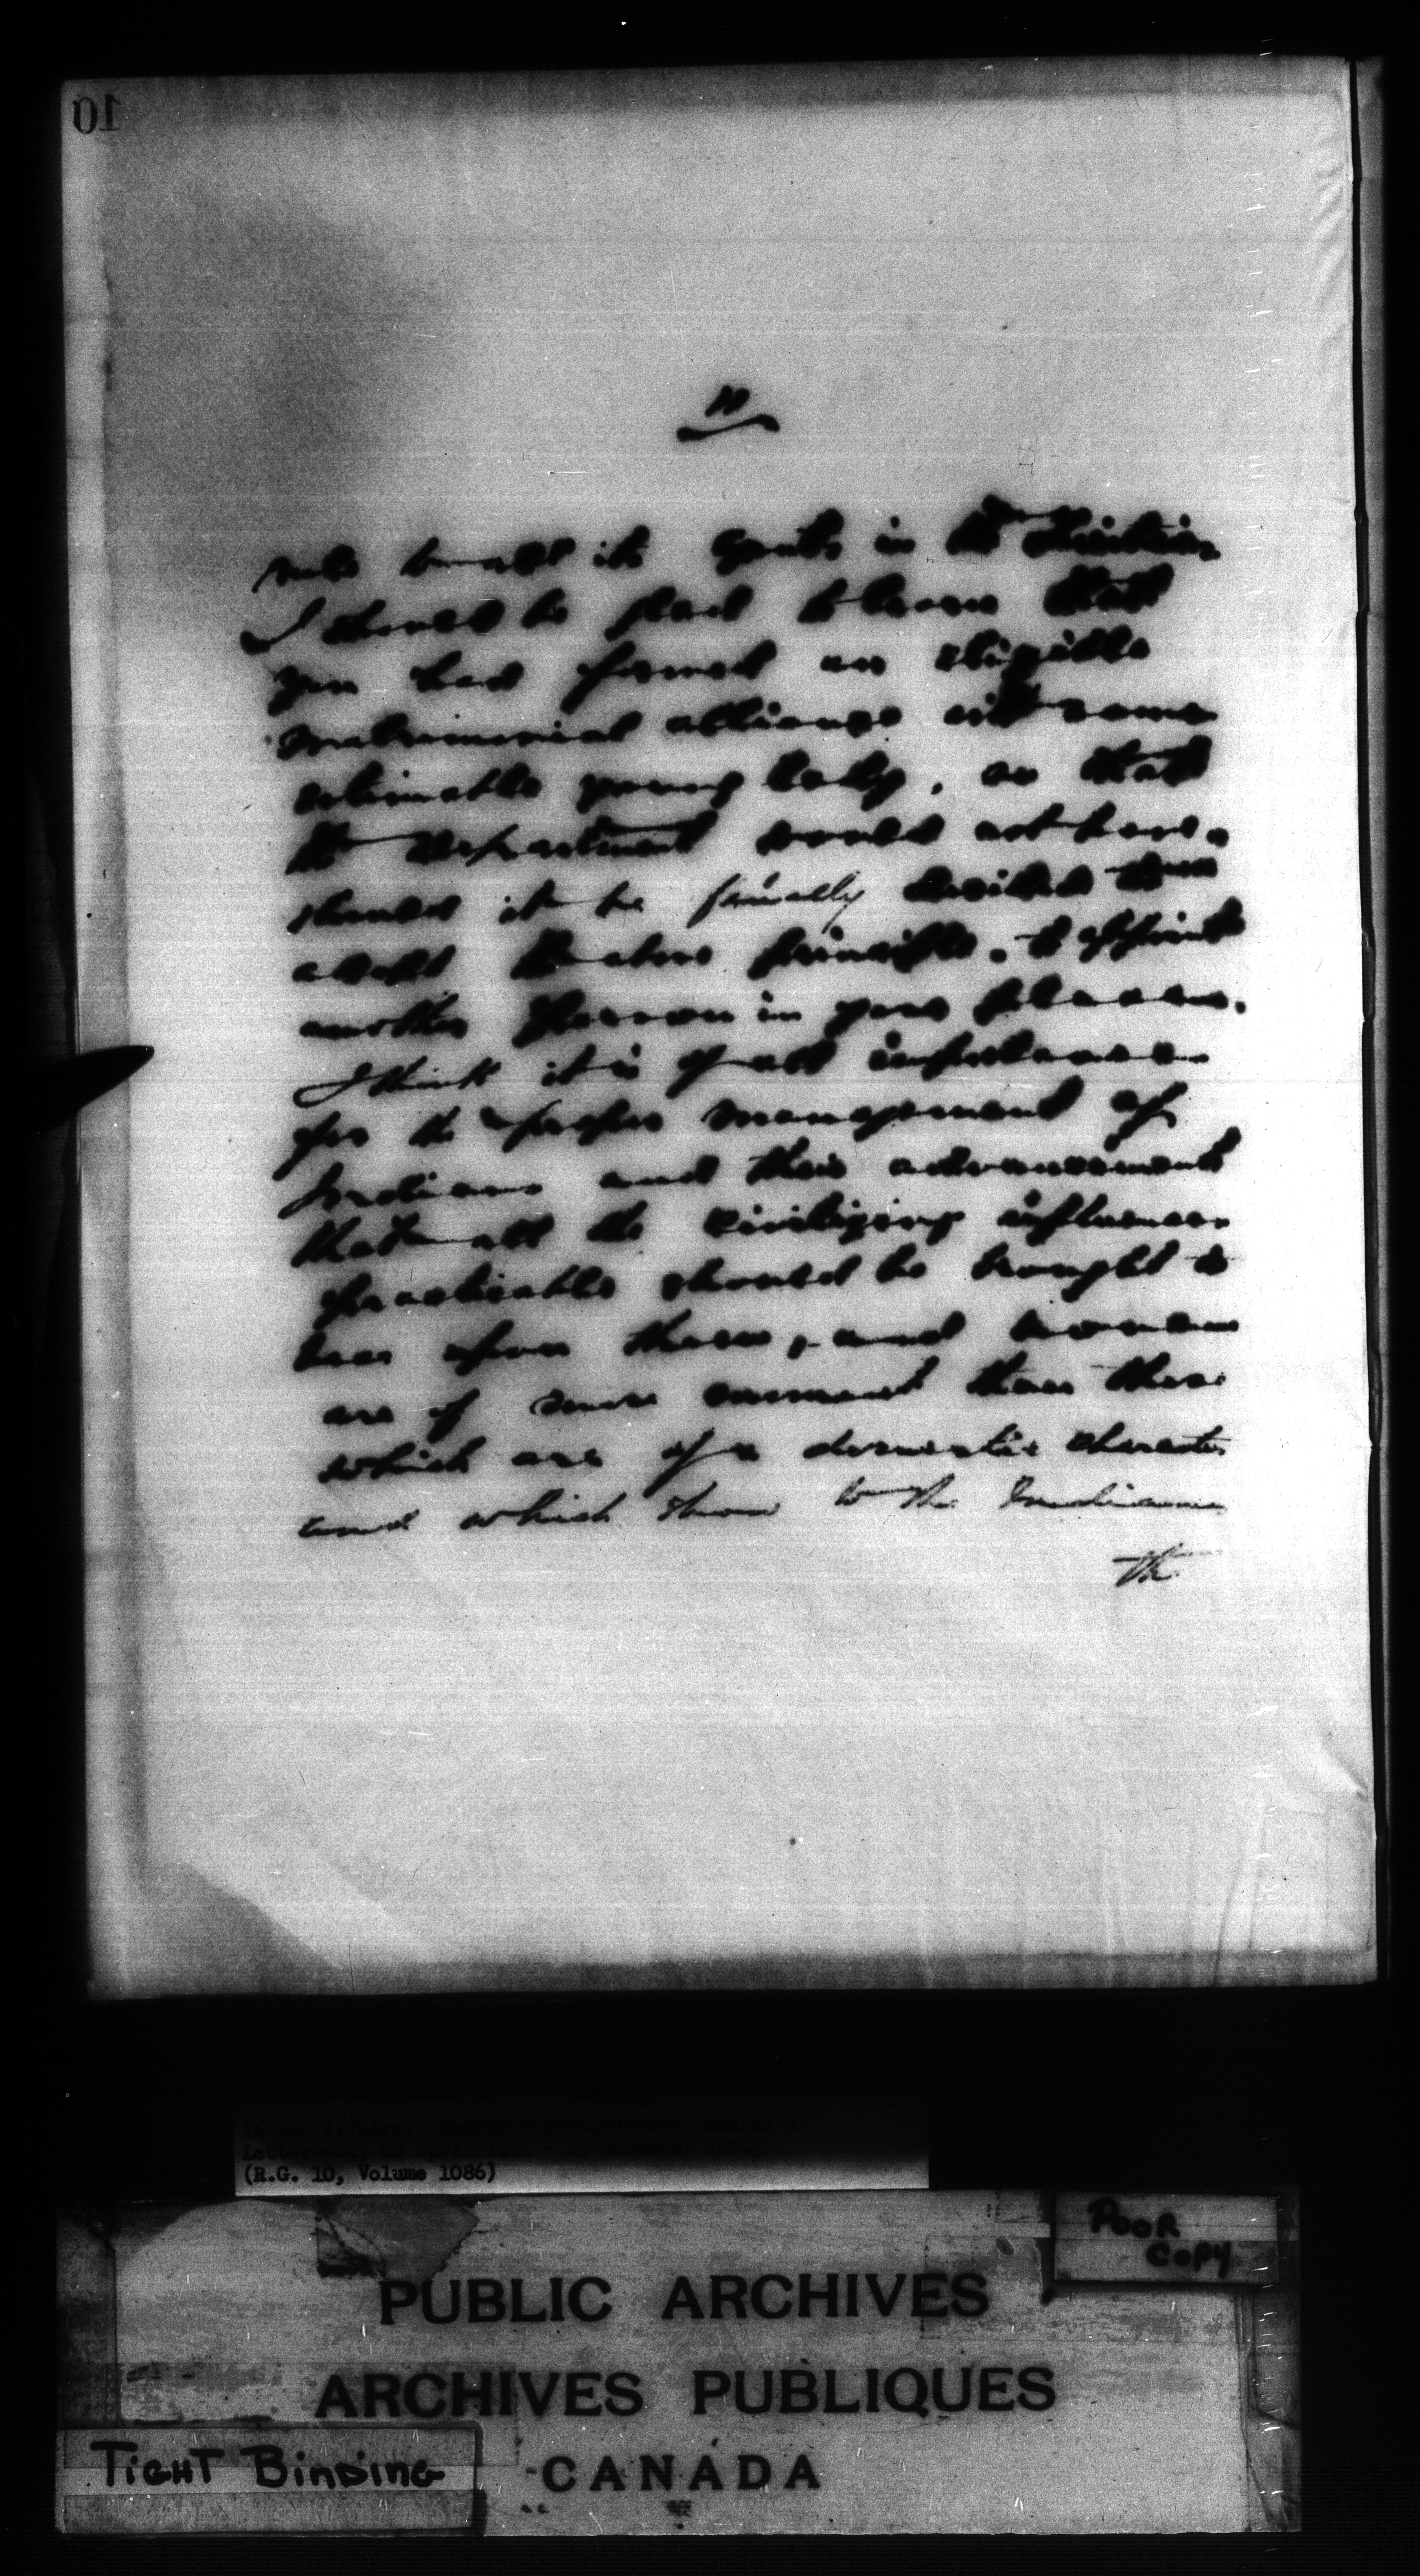 10
rule to all its Agents in the Territories,
I should be glad to learn that
you had formed an eligible
matrimonial alliance with some
estimable young lady, so that
the Department would not have,
should it be finally decided to
adopt the above principle, to appoint
another person in your place.
I think it is of all importance
for the proper management of
Indians and their advancement
that all the civilizing influences
practicable should be brought to
bear upon them, and
are of more than those
which are of a domestic character
and which show to the Indians
the
(R.G. 10, Volume 1086)
POOR
COPY
PUBLIC ARCHIVES
ARCHIVES PUBLIQUES
CANADA
TIGHT BINDING